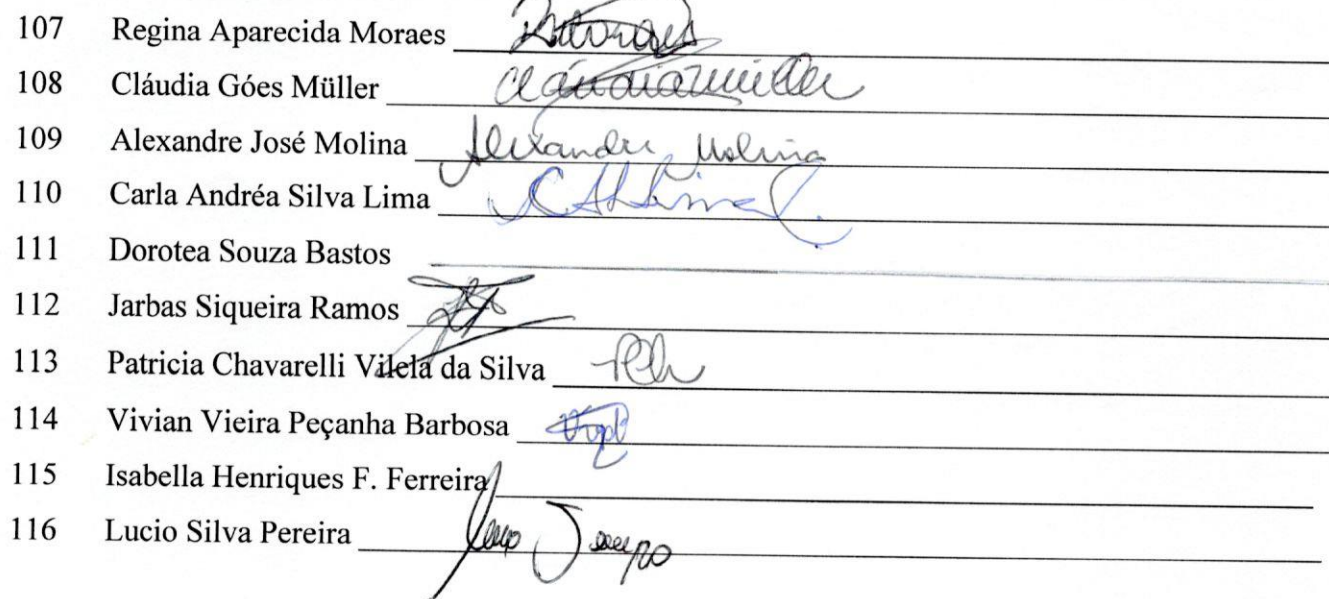 107 Regina Aparecida Moraes
108 Cláudia Góes Müller Cláudia Müller
109 Alexandre José Molina Alexandre Molina
110 Carla Andréa Silva Lima CALima
111 Dorotea Souza Bastos
112 Jarbas Siqueira Ramos
113 Patricia Chavarelli Vilela da Silva
114 Vivian Vieira Peçanha Barbosa
115 Isabella Henriques F. Ferreira
116 Lucio Silva Pereira